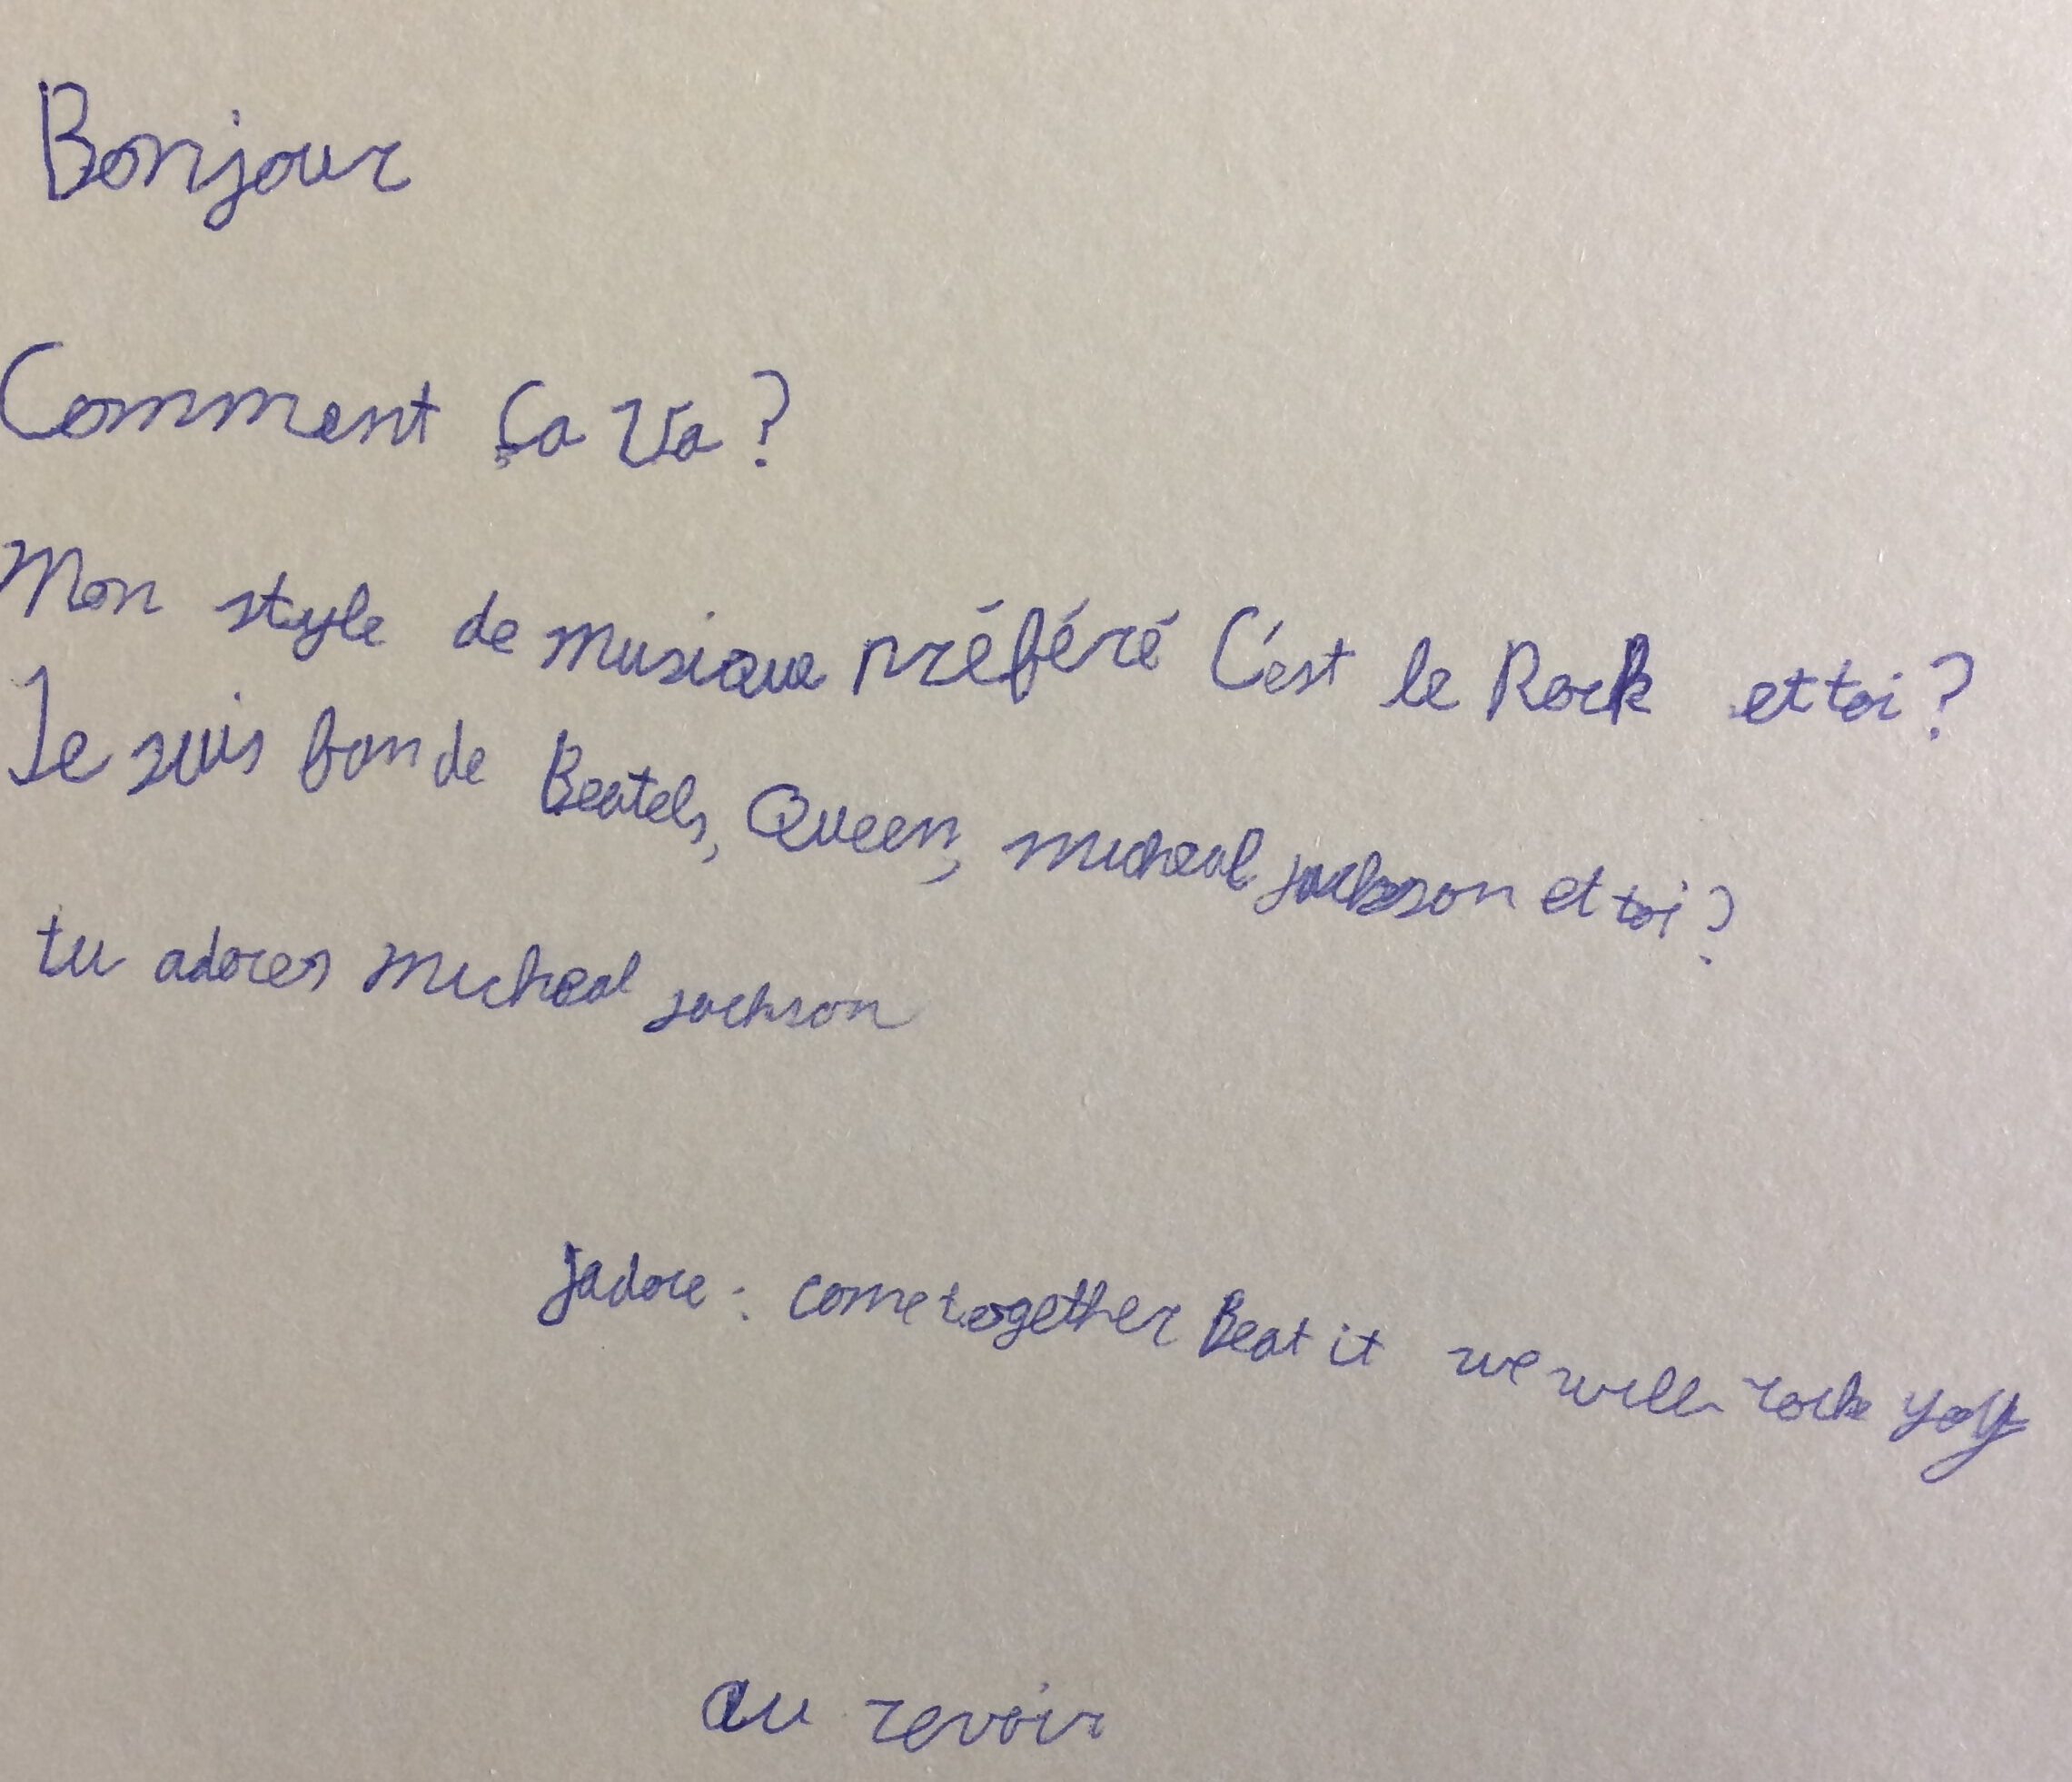 Bonjour
Comment ça va ?
Mon style de musique préféré C'est le Rock et toi ?
Je suis fan de Beatels, Queen, micheal jackson et toi ?
tu adores micheal jackson
Jadore : come together Beat it we will rock you
au revoir